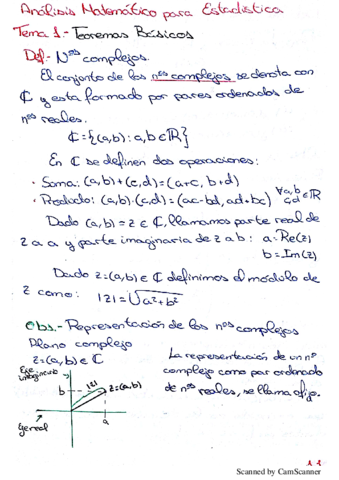 Análisis Matemático para Estadística
Tema 1.- Teoremas Básicos
Def.- Nºˢ complejos.
El conjunto de los nºˢ complejos se denota con
ℂ y esta formado por pares ordenados de
nºˢ reales.
ℂ = {(a,b) : a,b ∈ ℝ}
En ℂ se definen dos operaciones:
· Suma: (a,b)+(c,d)=(a+c, b+d)
· Producto: (a,b)·(c,d)=(ac-bd, ad+bc) ∀a,b c,d ∈ ℝ
Dado (a,b) = z ∈ ℂ, llamamos parte real de
z a a y parte imaginaria de z a b: a=Re(z)
b=Im(z)
Dado z=(a,b) ∈ ℂ definimos el módulo de
z como: |z| = √a²+b²
Obs.- Representación de los nºˢ complejos
Plano complejo
z=(a,b) ∈ ℂ
Eje imaginario
b
|z|
z=(a,b)
a
Eje real
La representación de un nº
complejo como par ordenado
de nºˢ reales, se llama afijo.
1.1
Scanned by CamScanner